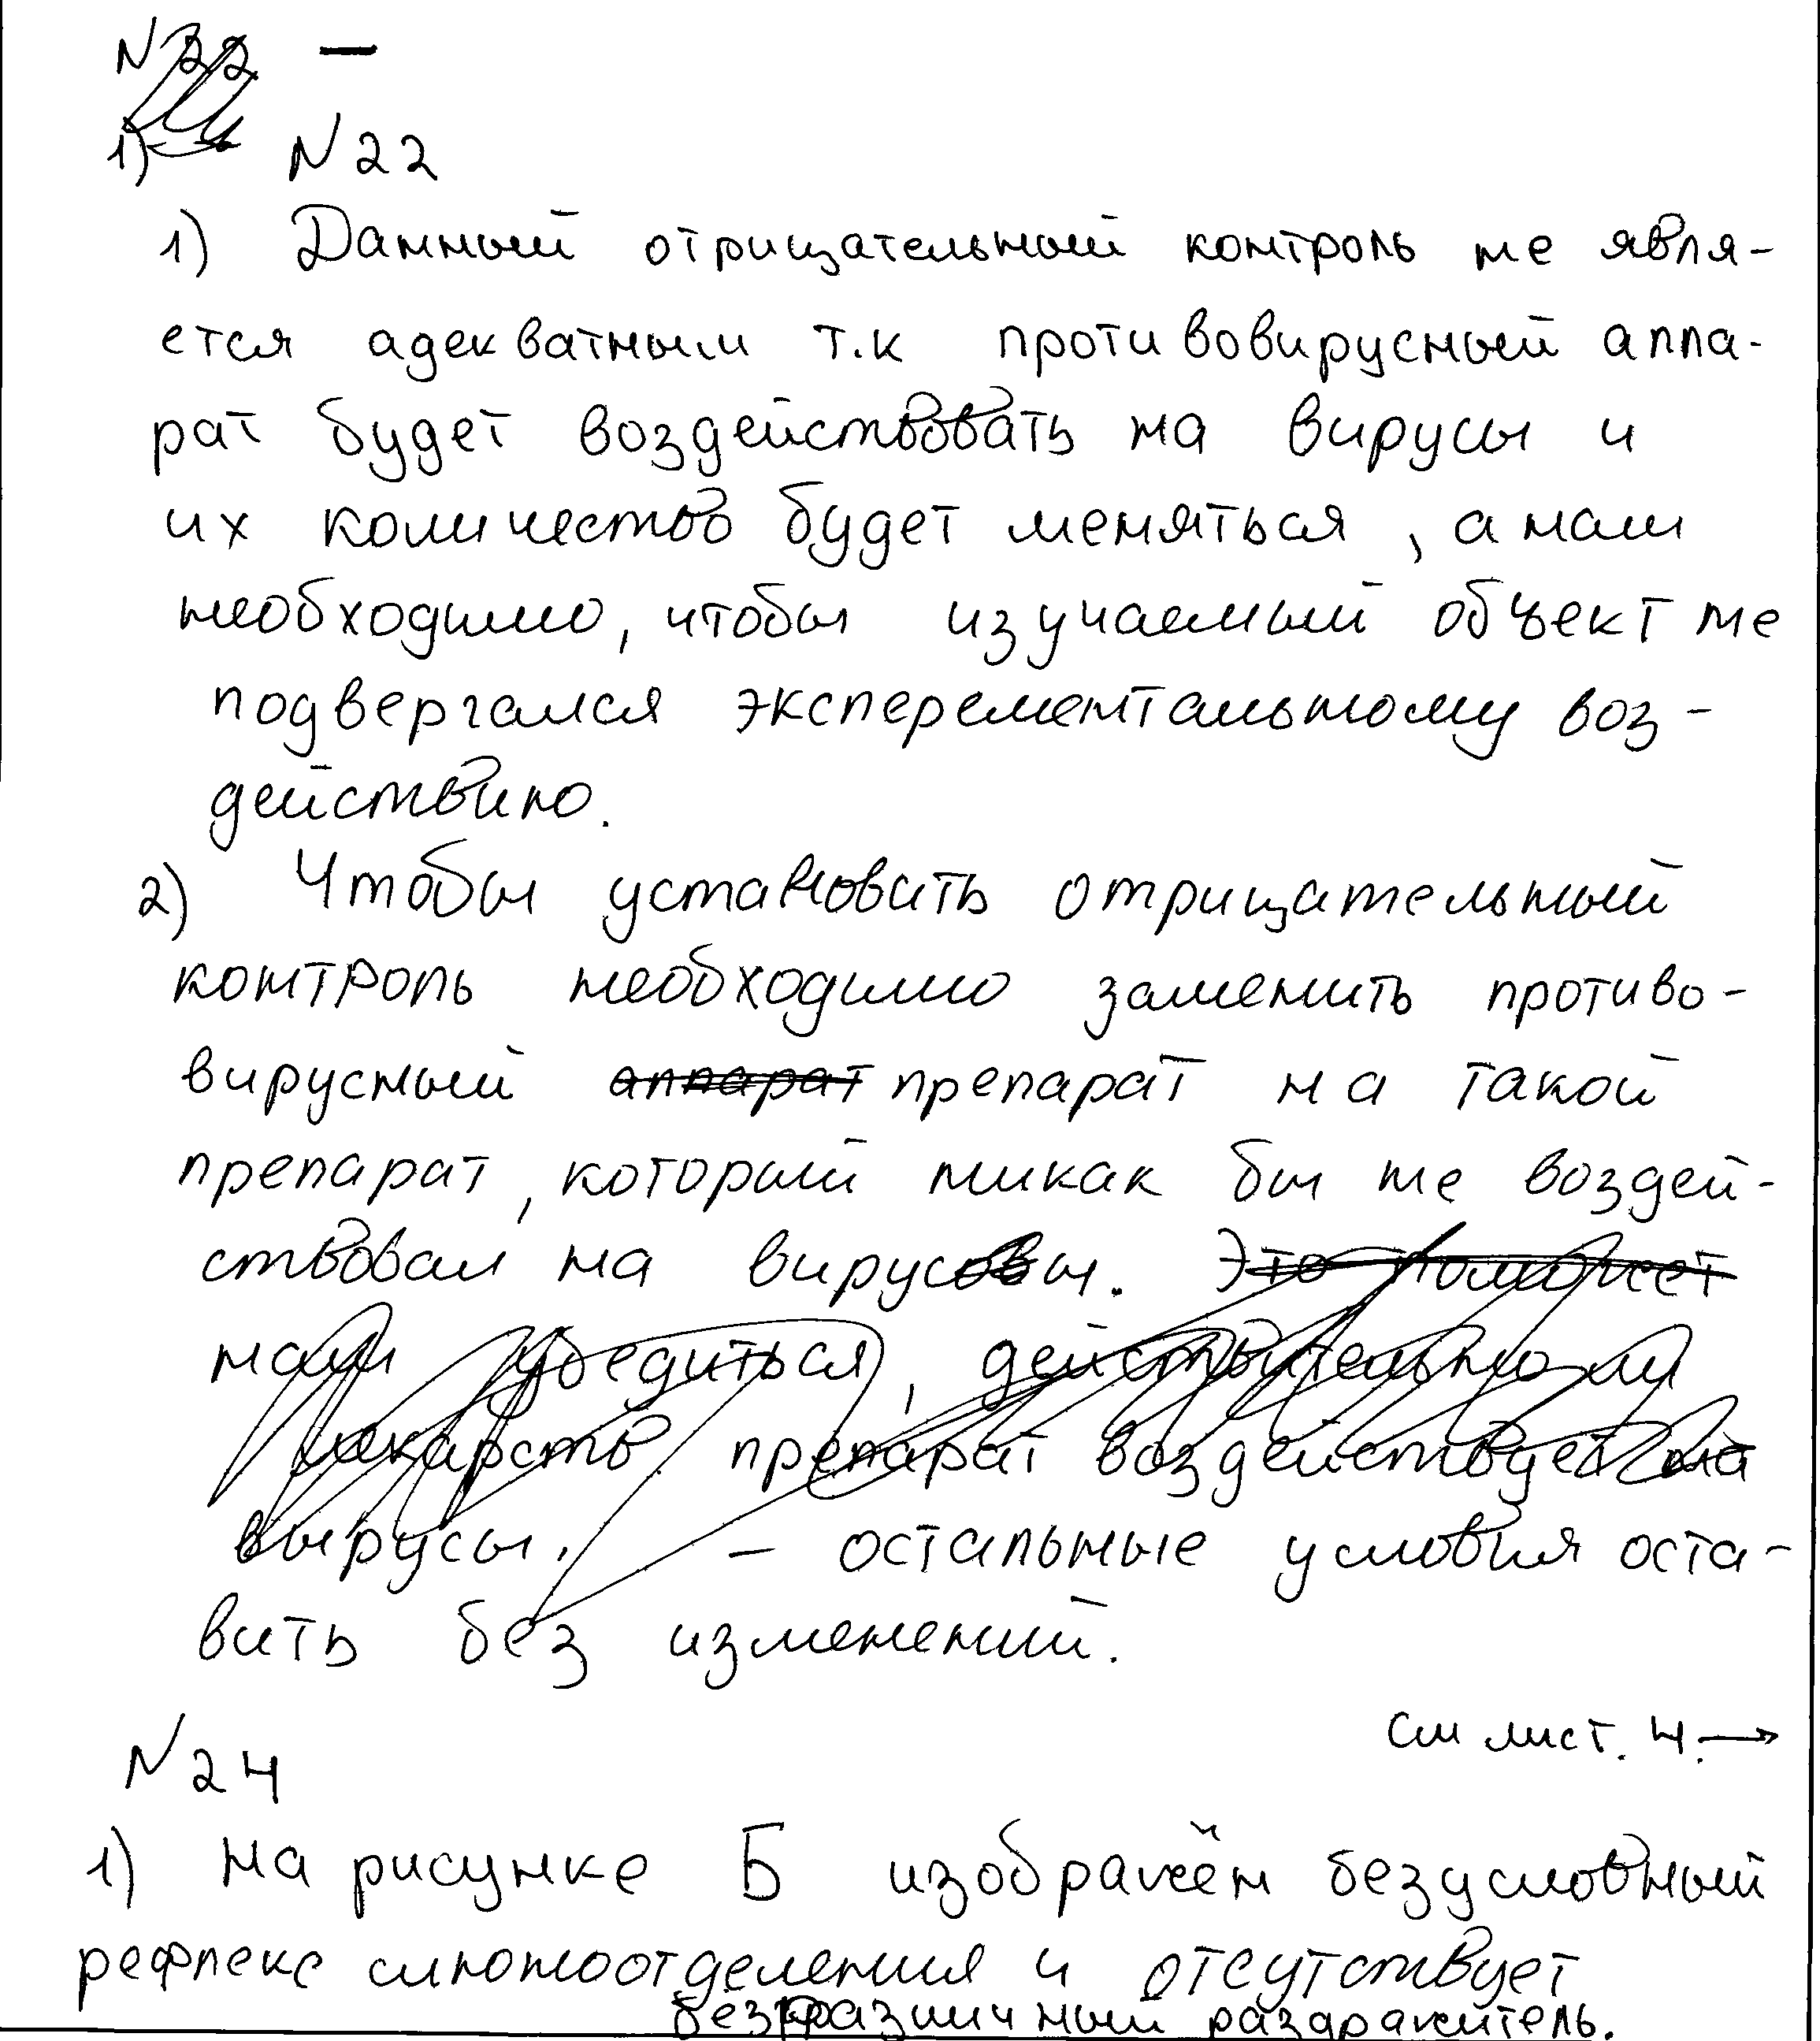 N 22 —
1) N 22
1) Данный отрицательный контроль не явля-
ется адекватным т.к противовирусный аппа-
рат будет воздействовать на вирусы и
их количество будет меняться, а нам
необходимо, чтобы изучаемый объект не
подвергался эксперементальному воз-
действию.
2) Чтобы установить отрицательный
контроль необходимо заменить противо-
вирусный аппарат препарат на такой
препарат, который никак бы не воздей-
ствовал на вирусы. Это поможет
нам убедиться, действительно ли
лекарств препарат воздействует на
вырусы. – остальные условия оста-
вить без изменений.
см лист. 4. →
N 24
1) На рисунке Б изображён безусловный
рефлекс слюноотделения и отсутствует
безразличный раздражитель.